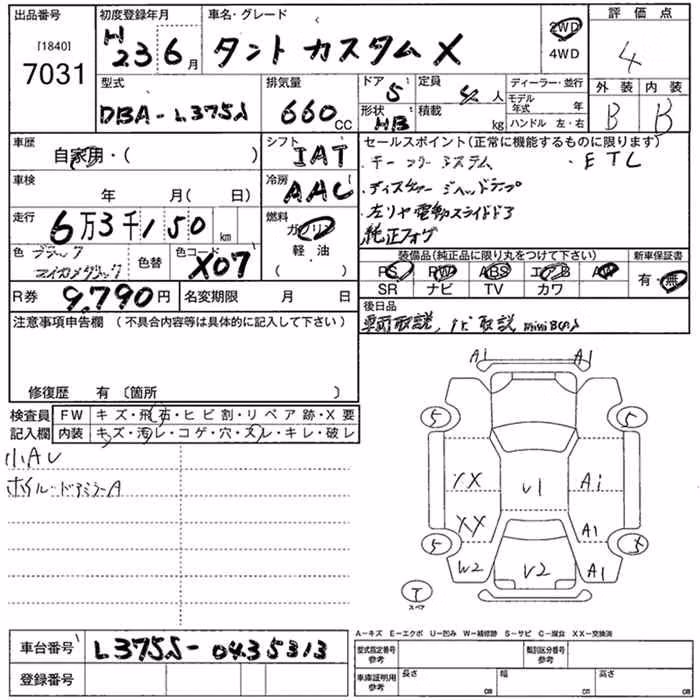 出品番号 初度登録年月 車名・グレード 評価点
[1840]
7031
H 23 6月 タント カスタム X
2WD
4WD
4
型式 排気量 ドア 5 定員 4人 ディーラー・並行 外装 内装
DBA-L375S 660cc 形状 HB 積載 kg モデル年式 年 B B
ハンドル 左・右
車歴 シフト セールスポイント(正常に機能するものに限ります)
自家用・( ) IAT キーフリーシステム ・ETC
車検 冷房 ・ディスチャージヘッドランプ
年 月( 日) AAC
左リヤ電動スライドドア
走行 燃料 純正フォグ
6万3千150km ガソリン
軽・油
( )
色 ブラックマイカメタリック 色替 色コード X07
装備品(純正品に限り丸をつけて下さい) 新車保証書
PS PW ABS エアB AW 有・無
SR ナビ TV カワ
R券 9,790円 名変期限 月 日 後日品
車両取説,ナビ取説
注意事項申告欄 (不具合内容等は具体的に記入して下さい)
修復歴 有 〔箇所 〕
検査員 FW キズ・飛石・ヒビ割・リペア跡・X要
記入欄 内装 キズ・汚レ・コゲ・穴・スレ・キレ・破レ
小AU
ホイル・ドアミラーA
A1 A1
5 5
XX U1 A1
XX A1
5 5
W2 U2 A1
T
スペア
A−キズ E−エクボ U−凹み W−補修跡 S−サビ C−腐食 XX−交換済
車台番号 L375S-0435313
型式指定番号 参考 類別区分番号 参考
登録番号
車庫証明用 参考 長さ cm 幅 cm 高さ cm